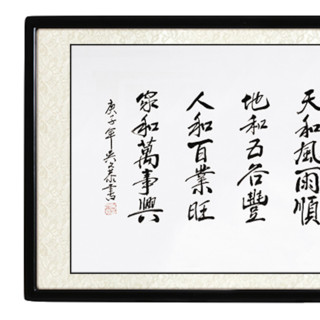 天和風雨順
地和五谷豐
人和百業旺
家和萬事興
庚子年吳
書